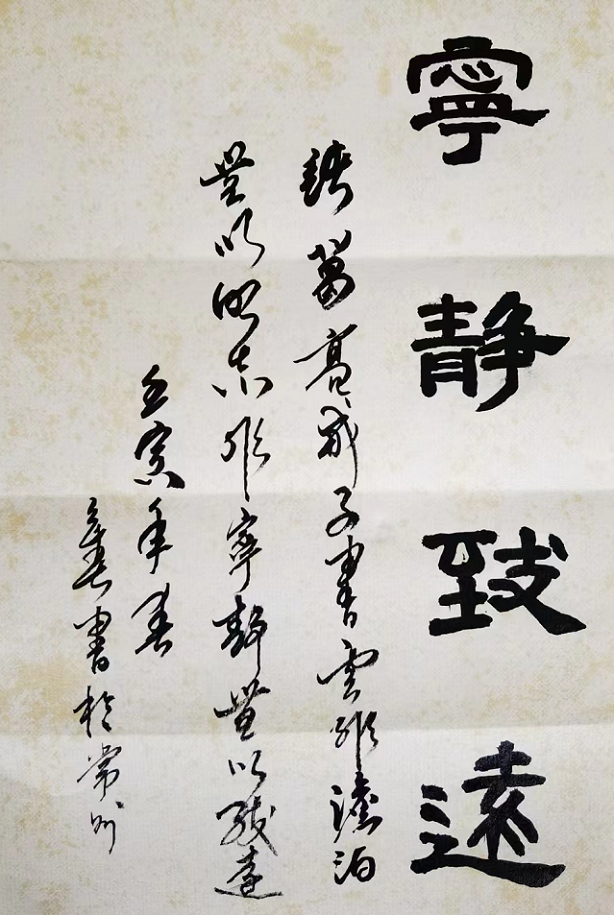 寧靜致遠
諸葛亮戒子書雲非澹泊
無以明志非寧靜無以致遠
壬寅年春
書於常州